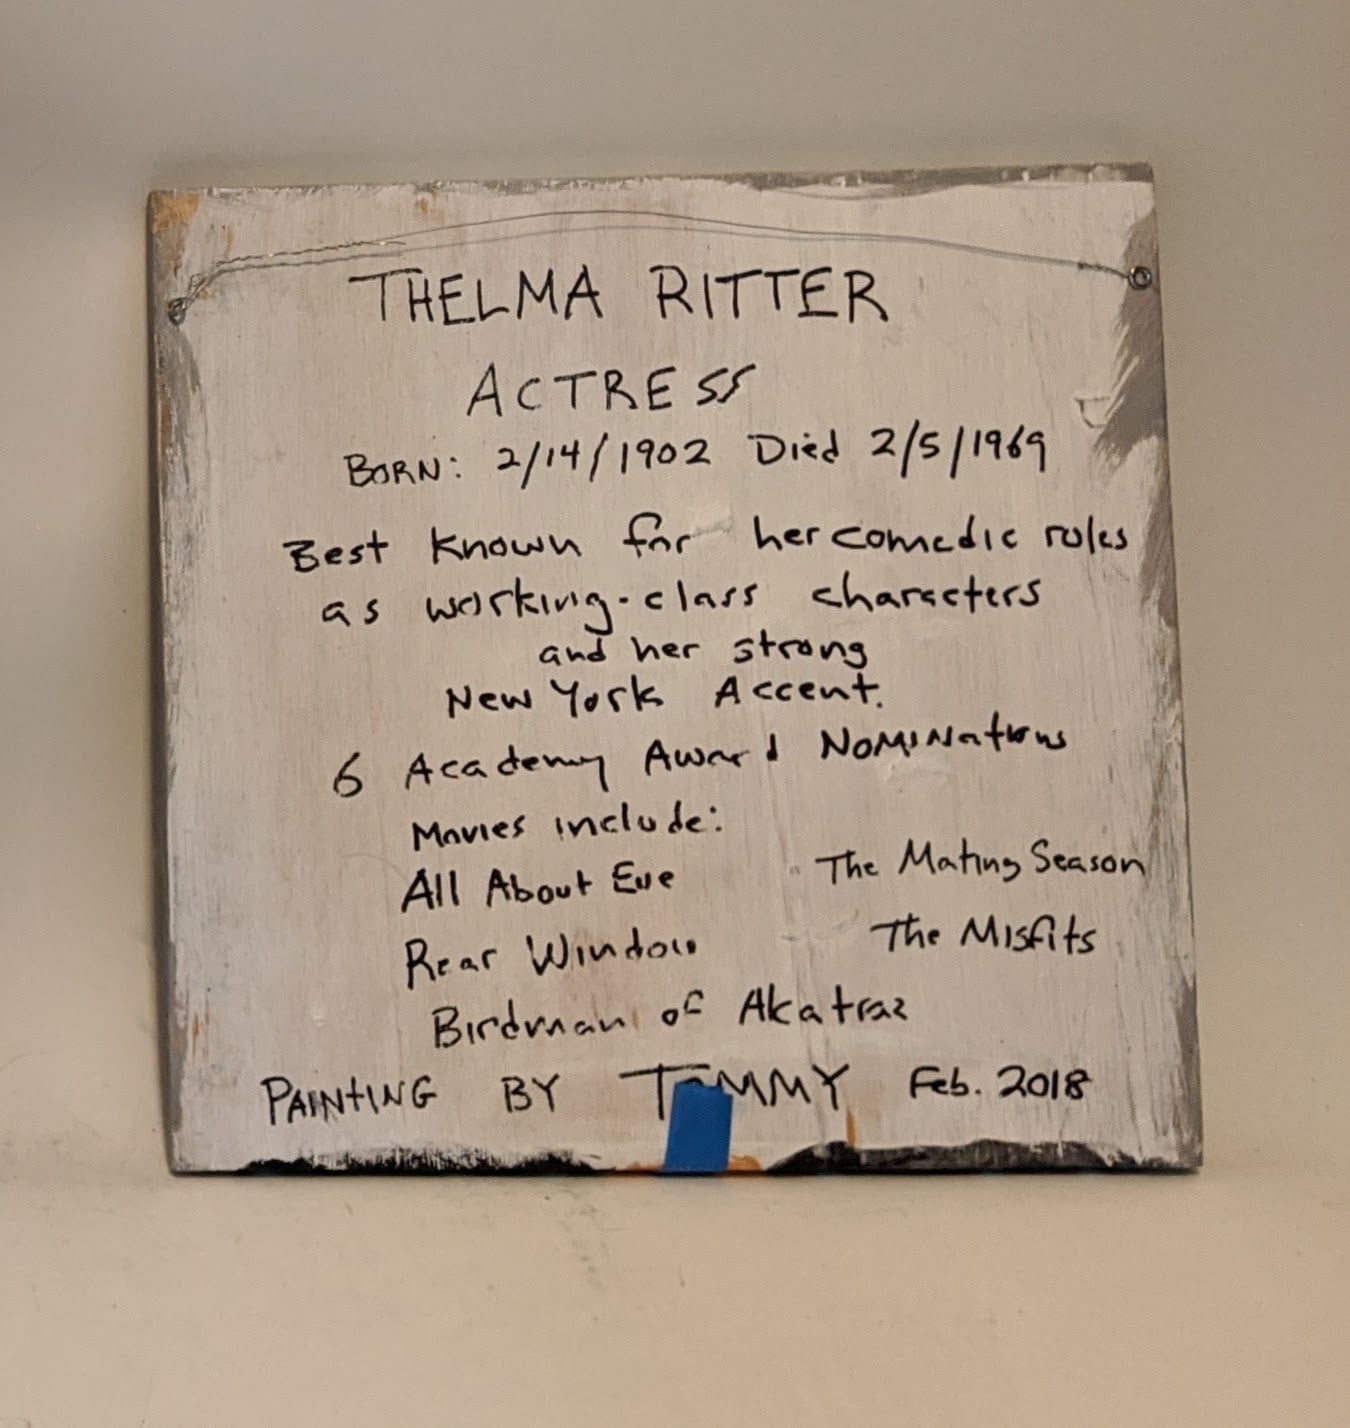 THELMA RITTER
ACTRESS
BORN: 2/14/1902 Died 2/5/1969
Best known for her comedic roles
as working-class characters
and her strong
New York Accent.
6 Academy Award NOMINations
Movies include:
All About Eve The Mating Season
Rear Window The Misfits
Birdman of Alcatraz
PAINTING BY TOMMY Feb. 2018